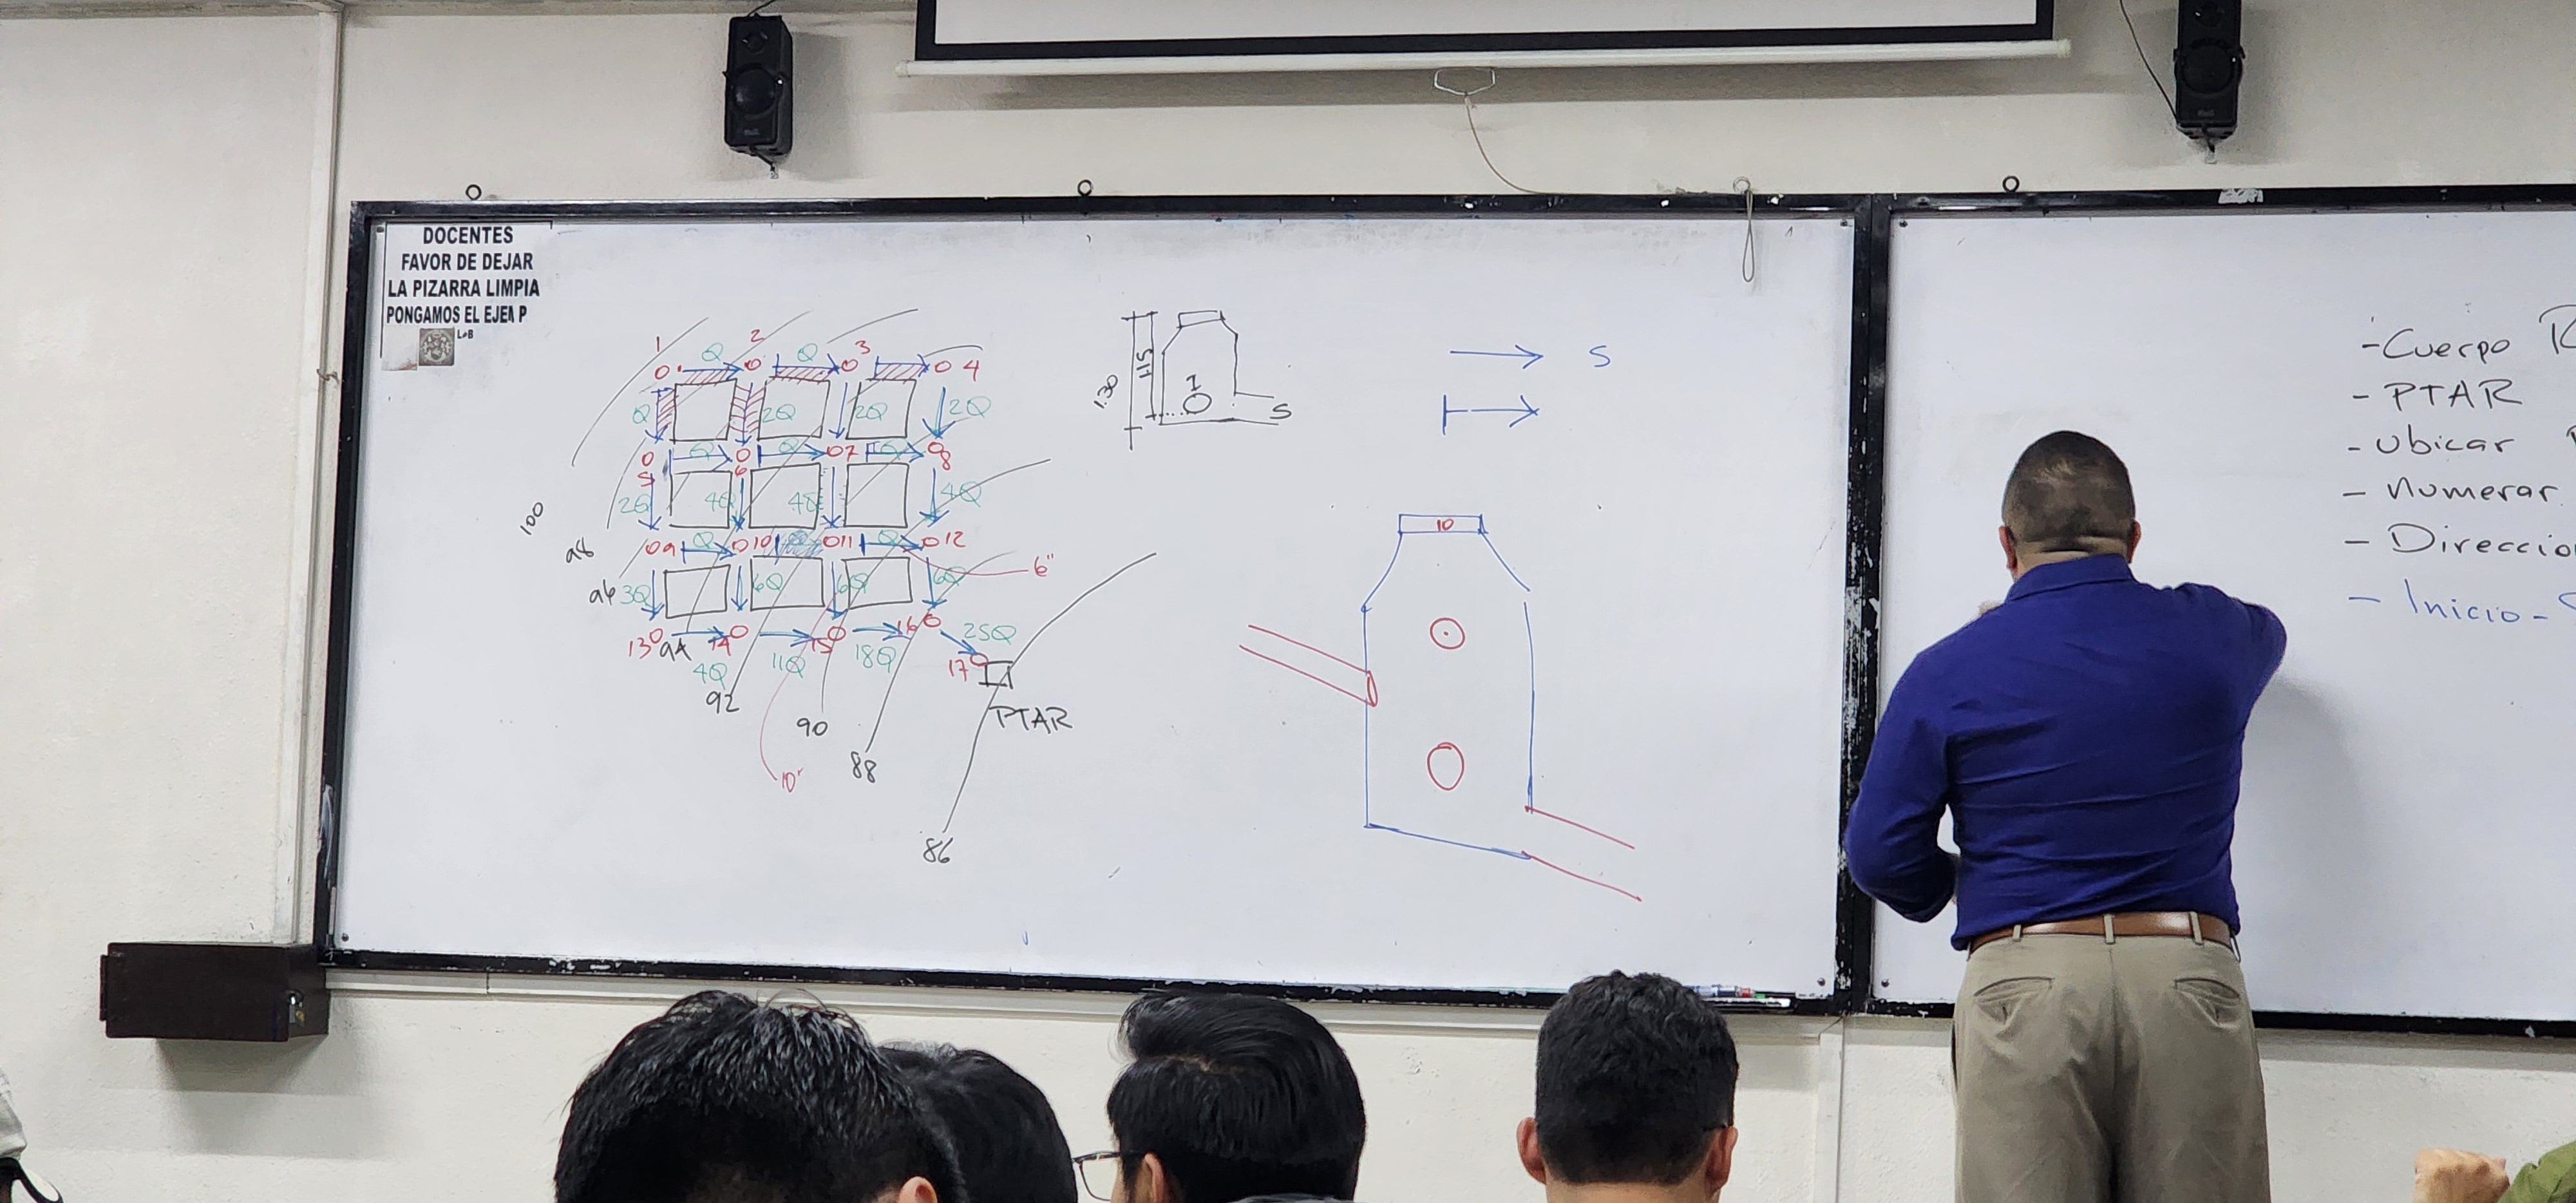 DOCENTES
FAVOR DE DEJAR
LA PIZARRA LIMPIA
PONGAMOS EL EJEM P
1 2 3 4
Q Q
Q 2Q 2Q 2Q
Q Q Q
5 6 7 8
2Q 4Q 4Q 4Q
9 Q 10 11 Q 12
3Q 6Q 6Q 6Q
13 14 15 16
4Q 11Q 18Q 25Q
17
PTAR
100
98
96
94
92
90
88
86
6"
10"
1.30
1.15
I
S
S
10
- Cuerpo R
- PTAR
- Ubicar
- Numerar
- Direccio
- Inicio -